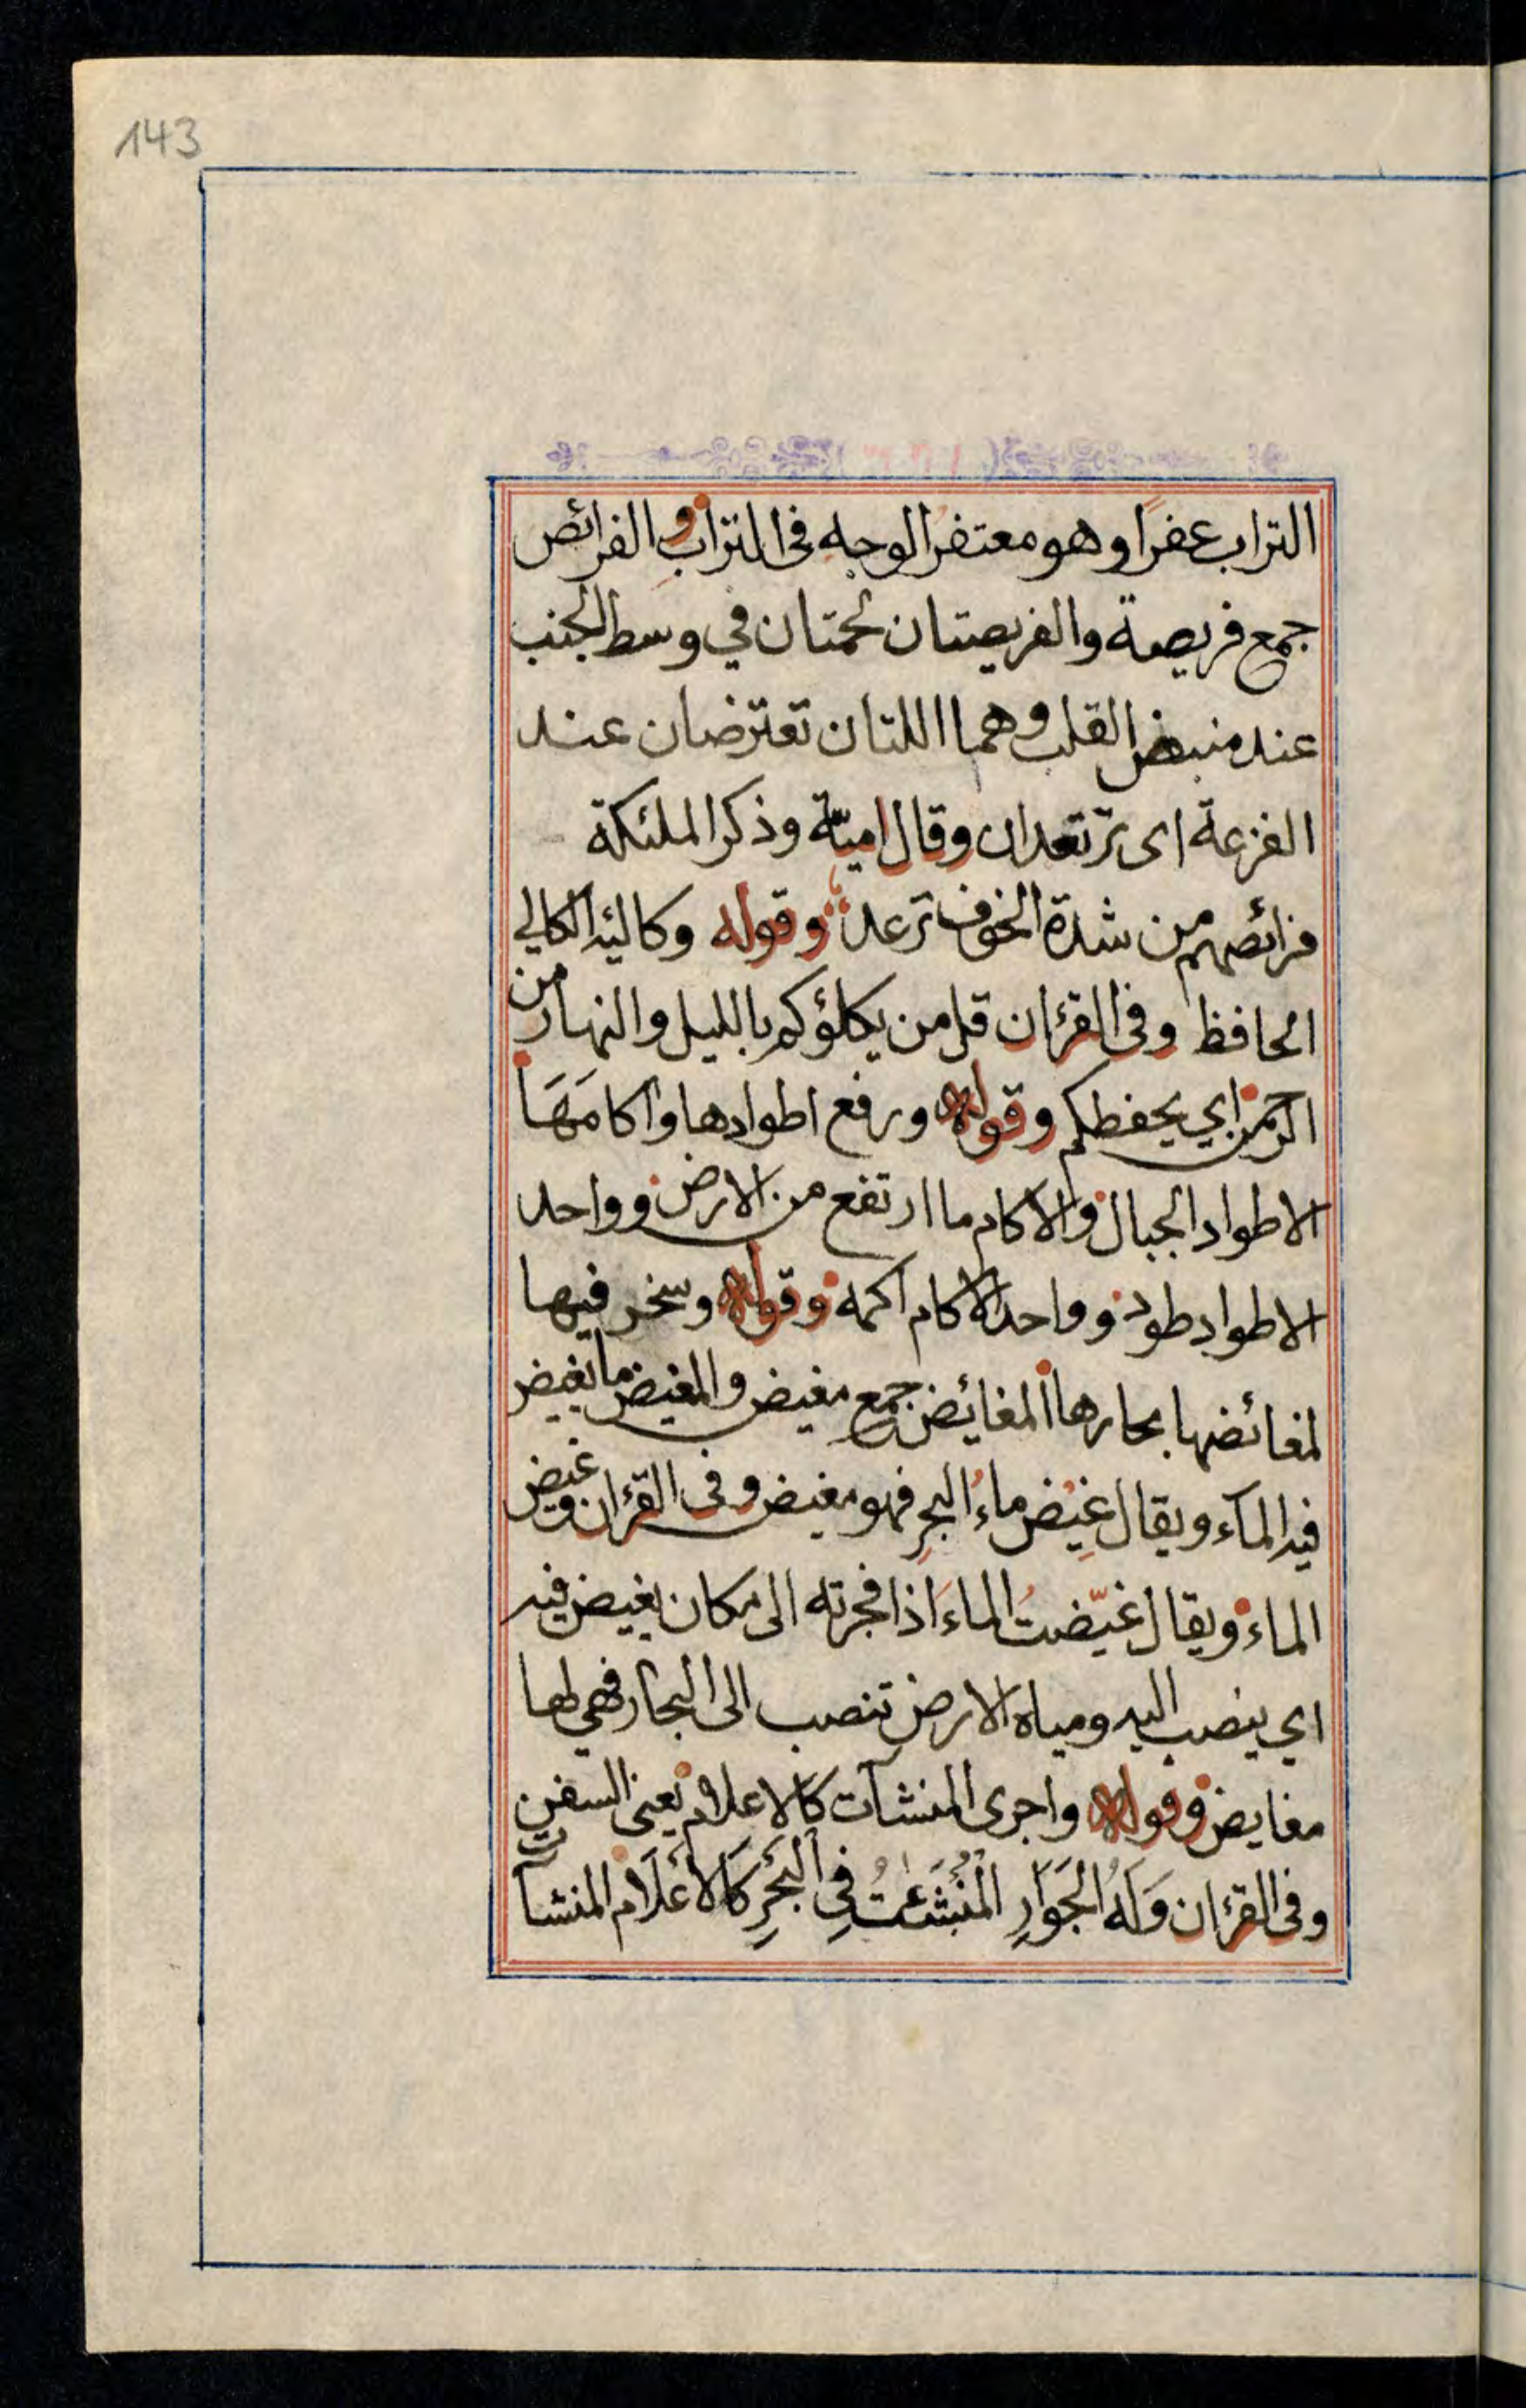 143
التراب عفرًا وهو معتفرُ الوجهِ فى التراب والفرائص
جمع فريصة والفريصتان لحمتان في وسط الجنب
عند منبض القلب وهما اللتان تفترضان عند
الفزعة اى ترتعدان وقال اميّة وذكر الملئكة
فرائصهم من شدة الخوف ترعد وقوله وكاليه الكالي
الحافظ وفى القرءان قل من يكلؤكم بالليل والنهار من
الرحمن اي يحفظكم وقوله ورفع اطوادها واكامَهَا
الاطواد الجبال والاكام ما ارتفع من الارض وواحد
الاطواد طود وواحد الاكام اكمه وقوله وسخر فيها
لمغائضها بحارها المغائض جمع مغيض والمغيض ما يغيض
فيه المآء ويقال غِيْضَ ماءُ البحرِ فهو مغيض وفى القرءان وغيض
الماء ويقال غيّضتُ الماءَ اذا فجرته الى مكان يغيض فيه
اي ينصب اليه ومياه الارض تنصب الى البحار فهي لها
مغايض وقوله واجرى المنشآت كالاعلام يعنى السفن
وفى القرءان وَلَهُ الجَوَارِ الْمُنْشَئٰتُ فِى الْبَحْرِ كَالأَعْلَام المنشآت